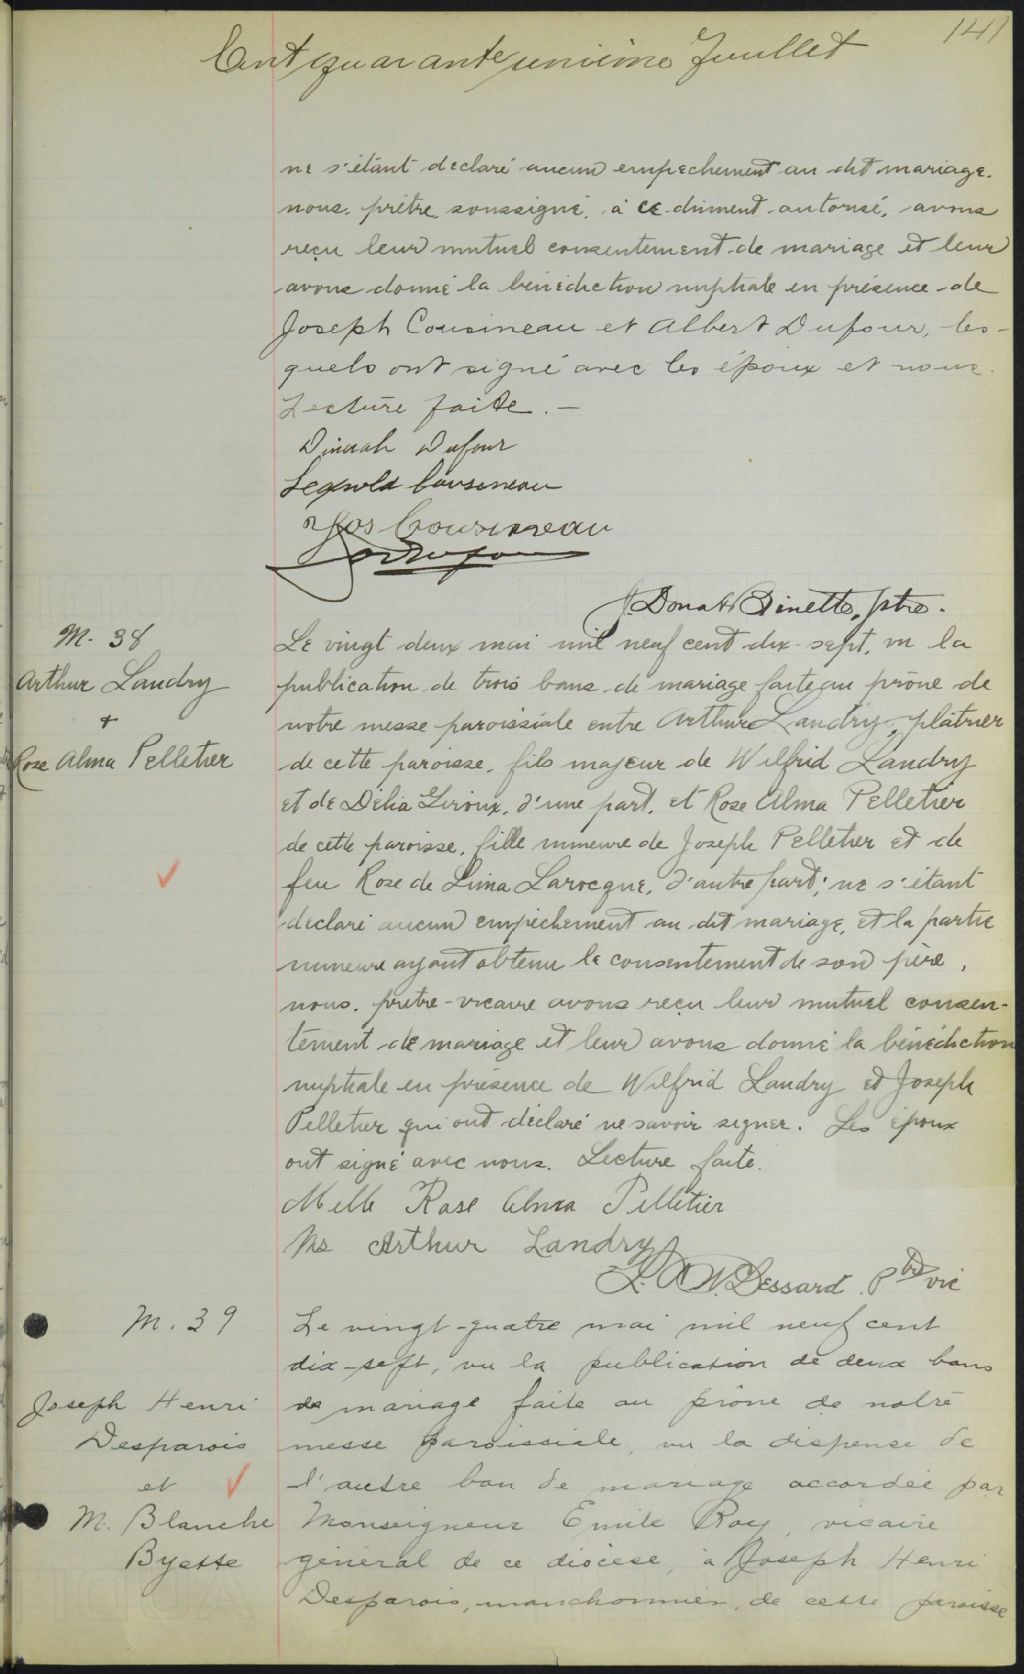 141
Cent quarante unième Feuillet
ne s'étant déclaré aucun empêchement au dit mariage.
nous, prêtre soussigné, à ce dûment autorisé, avons
reçu leur mutuel consentement de mariage et leur
avons donné la bénédiction nuptiale en présence de
Joseph Cousineau et Albert Dufour, les-
quels ont signé avec les époux et nous.
Lecture faite. —
Dinah Dufour
Léopold Cousineau
Jos Cousineau
J. Donat Binette, ptre.
M. 38
Arthur Landry
+
Rose Alma Pelletier
Le vingt deux mai mil neuf cent dix-sept, vu la
publication de trois bans de mariage faite au prône de
notre messe paroissiale entre Arthur Landry, plâtrier
de cette paroisse, fils majeur de Wilfrid Landry
et de Délia Giroux, d'une part, et Rose Alma Pelletier
de cette paroisse, fille mineure de Joseph Pelletier et de
feu Rose de Lima Larocque, d'autre part; ne s'étant
déclaré aucun empêchement au dit mariage, et la partie
mineure ayant obtenu le consentement de son père,
nous, prêtre-vicaire avons reçu leur mutuel consen-
tement de mariage et leur avons donné la bénédiction
nuptiale en présence de Wilfrid Landry et Joseph
Pelletier qui ont déclaré ne savoir signer. Les époux
ont signé avec nous. Lecture faite.
Melle Rose Alma Pelletier
Mr Arthur Landry
Lessard Ptre vic
M. 39
Joseph Henri
Desparois
et
M. Blanche
Byette
Le vingt-quatre mai mil neuf cent
dix-sept, vu la publication de deux bans
de mariage faite au prône de notre
messe paroissiale, vu la dispense de
l'autre ban de mariage accordée par
Monseigneur Emile Roy, vicaire
général de ce diocèse, à Joseph Henri
Desparois, manchonnier, de cette paroisse